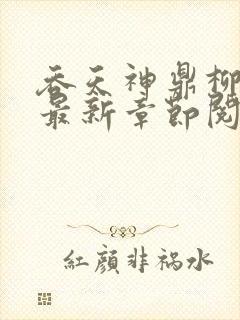 吞天神鼎柳
最新章節閱
紅顏非祸水